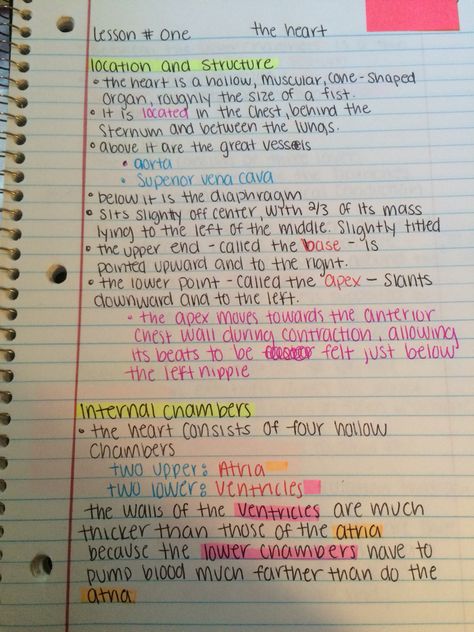 Lesson # one the heart
location and structure
• the heart is a hollow, muscular, cone-shaped
organ, roughly the size of a fist.
• it is located in the chest, behind the
sternum and between the lungs.
• above it are the great vessels
• aorta
• Superior vena cava
• below it is the diaphragm
• sits slightly off center, with 2/3 of its mass
lying to the left of the middle. Slightly titled
• the upper end - called the base - is
pointed upward and to the right.
• the lower point - called the apex - slants
downward and to the left.
• the apex moves towards the anterior
chest wall during contraction, allowing
its beats to be felt just below
the left nipple
Internal chambers
• the heart consists of four hollow
chambers
two upper: Atria
two lower: Ventricles
the walls of the ventricles are much
thicker than those of the atria
because the lower chambers have to
pump blood much farther than do the
atria